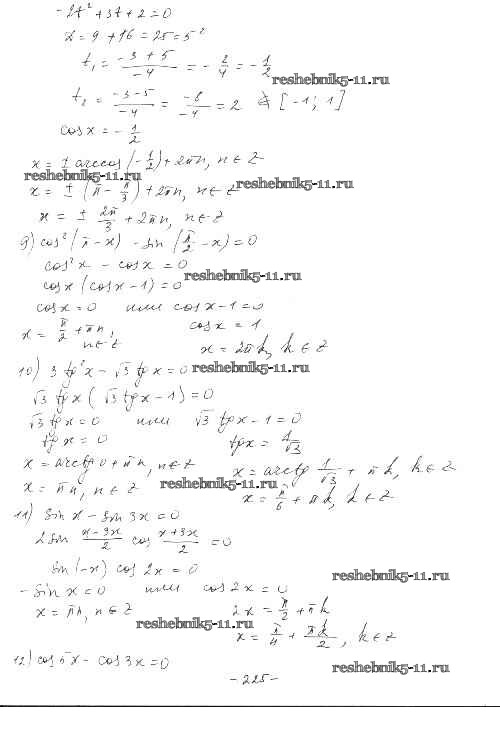 -2t² + 3t + 2 = 0
D = 9 + 16 = 25 = 5²
t₁ = (-3 + 5)/(-4) = -2/4 = -1/2
reshebnik5-11.ru
t₂ = (-3 - 5)/(-4) = (-8)/(-4) = 2 ∉ [-1; 1]
cos x = -1/2
x = ± arccos(-1/2) + 2πn, n ∈ Z
reshebnik5-11.ru
x = ± (π - π/3) + 2πn, n ∈ Z
reshebnik5-11.ru
x = ± 2π/3 + 2πn, n ∈ Z
9) cos²(π - x) - sin(π/2 - x) = 0
cos²x - cos x = 0
reshebnik5-11.ru
cos x (cos x - 1) = 0
cos x = 0 или cos x - 1 = 0
x = π/2 + πn, n ∈ Z cos x = 1
x = 2πk, k ∈ Z
10) 3 tg²x - √3 tg x = 0
reshebnik5-11.ru
√3 tg x (√3 tg x - 1) = 0
√3 tg x = 0 или √3 tg x - 1 = 0
tg x = 0 tg x = 1/√3
x = arctg 0 + πn, n ∈ Z x = arctg 1/√3 + πk, k ∈ Z
x = πn, n ∈ Z x = π/6 + πk, k ∈ Z
reshebnik5-11.ru
11) sin x - sin 3x = 0
2 sin (x - 3x)/2 cos (x + 3x)/2 = 0
sin(-x) cos 2x = 0
reshebnik5-11.ru
- sin x = 0 или cos 2x = 0
x = πn, n ∈ Z 2x = π/2 + πk
reshebnik5-11.ru
x = π/4 + πk/2, k ∈ Z
12) cos 5x - cos 3x = 0
reshebnik5-11.ru
- 225 -